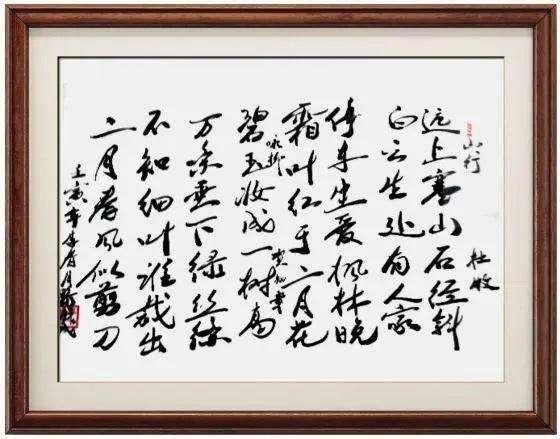 山行 杜牧
远上寒山石径斜
白云生处有人家
停车坐爱枫林晚
霜叶红于二月花
咏柳 贺知章
碧玉妆成一树高
万条垂下绿丝绦
不知细叶谁裁出
二月春风似剪刀
壬寅年春月